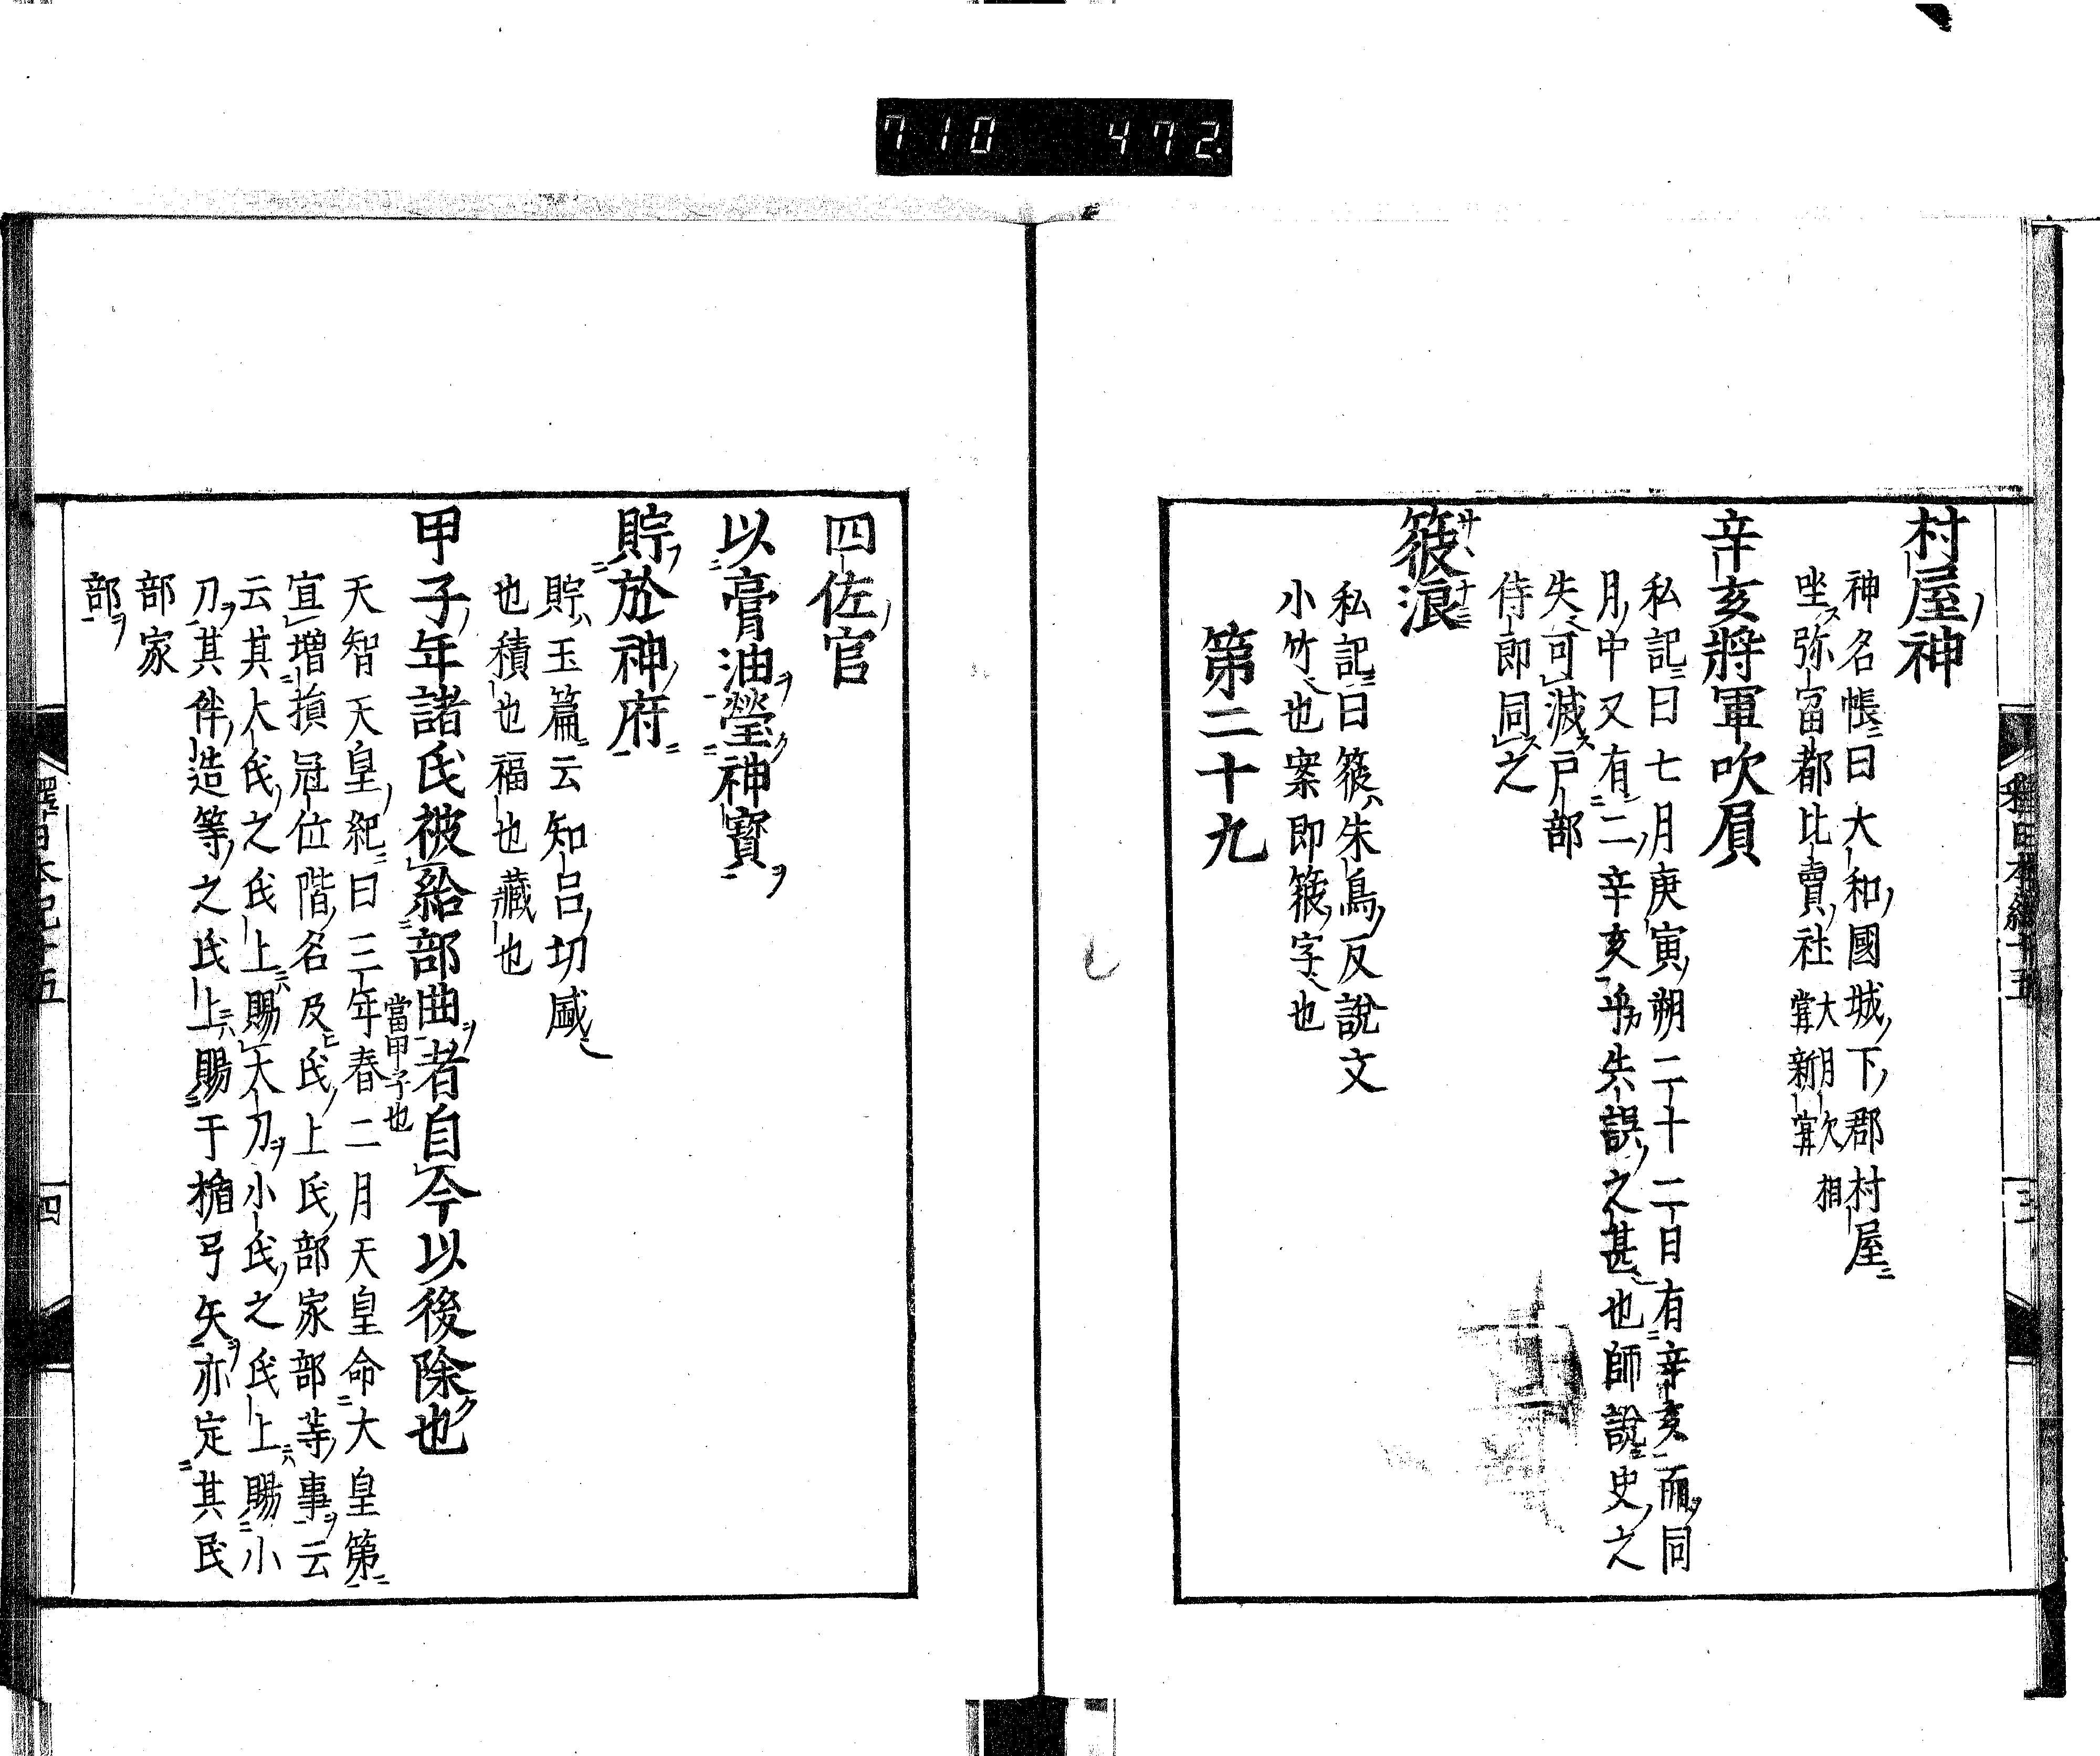 710 472.
村屋神
神名帳曰大和國城下郡村屋
坐弥冨都比賣社 大月次相
甞新甞
辛亥將軍吹屓
私記曰七月庚寅朔二十二日有辛亥而同
月中又有二辛亥争失誤之甚也師說史之
失可減戸部
侍郎同之
筱浪
私記曰筱朱鳥反說文
小竹也案即筱字也
第二十九
四佐官
以膏油瑩神寳
貯於神府
貯玉篇云知呂切盛
也積也福也藏也
甲子年諸氏被給部曲者自今以後除也
當甲子也
天智天皇紀曰三年春二月天皇命大皇第
宣増損冠位階名及氏上民部家部等事云
云其大氏之氏上賜大刀小氏之氏上賜小
刀其伴造等之氏上賜干楯弓矢亦定其民
部家
部
四